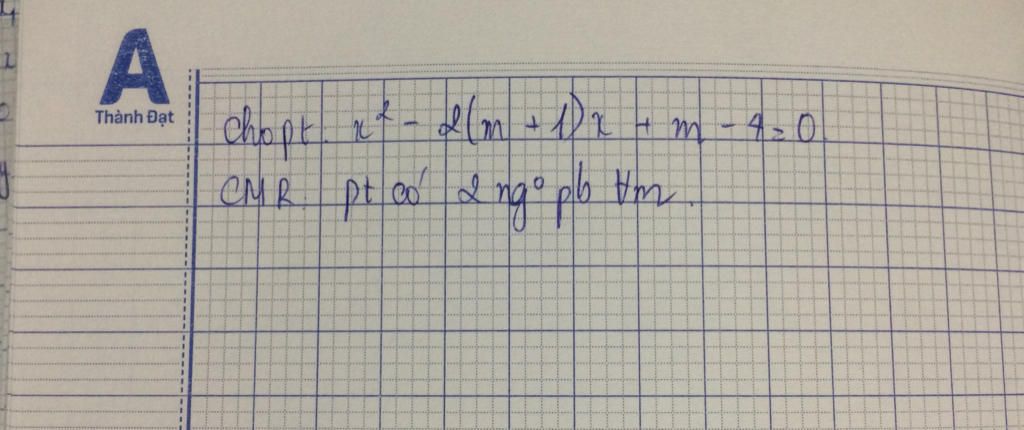 A
Thành Đạt
Cho pt: x² - 2(m + 1)x + m - 4 = 0
CMR: pt có 2 ngº pb ∀m.